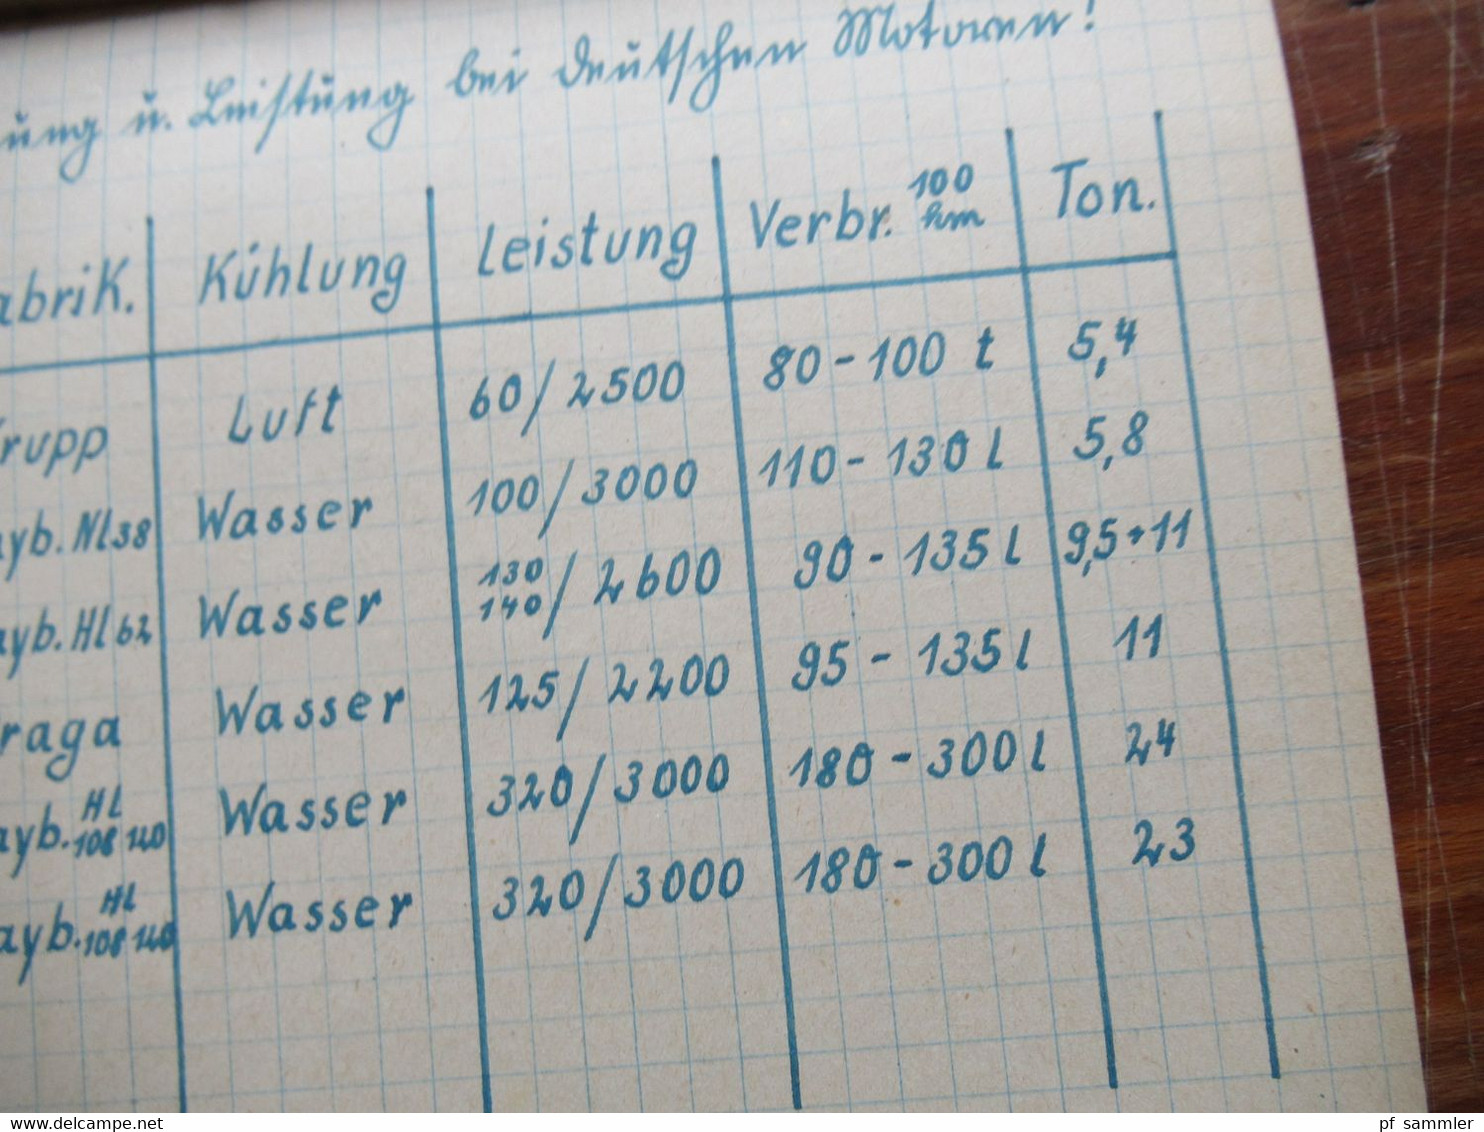 ung u. Leistung bei deutschen Motoren!
abrik. Kühlung Leistung Verbr. 100 km Ton.
rupp Luft 60/2500 80-100 t 5,4
ayb. Nl38 Wasser 100/3000 110-130 l 5,8
ayb. Hl62 Wasser 130 140/2600 90-135 l 9,5+11
raga Wasser 125/2200 95-135 l 11
ayb. Hl 108 120 Wasser 320/3000 180-300 l 24
ayb. Hl 108 120 Wasser 320/3000 180-300 l 23
www.delcampe.net
pf_sammler